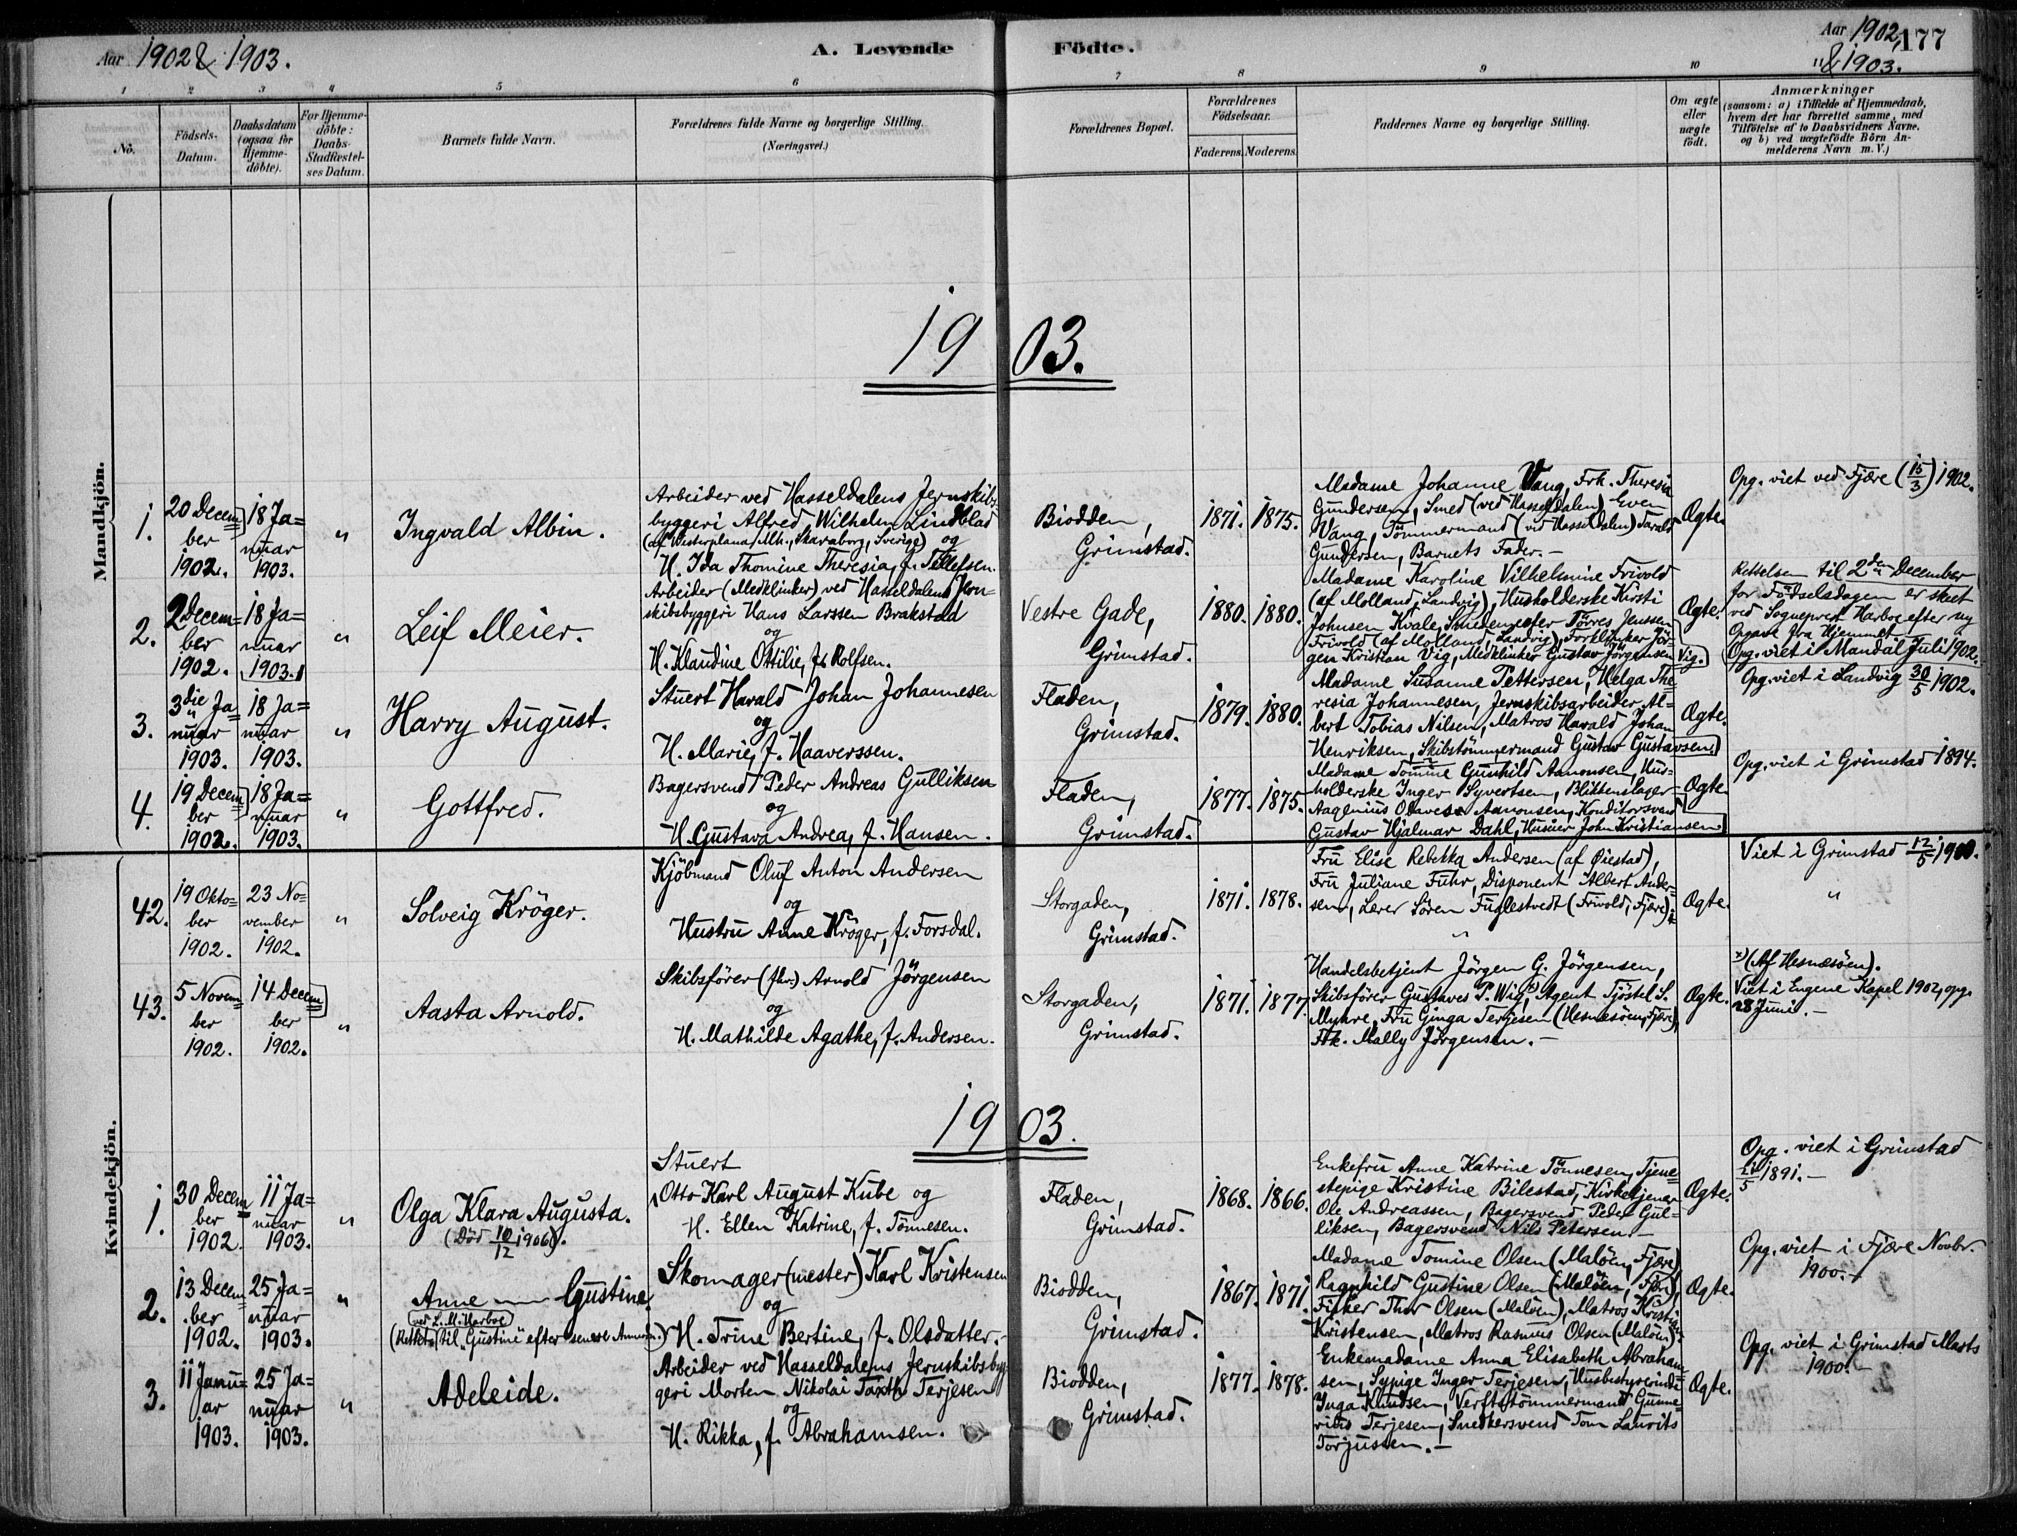 Aar 1902 & 1903.
A. Levende Födte.
Aar 1902, 177
" & 1903.
1 2 3 4 5 6 7 8 9 10
No.
Födsels-Datum.
Daabsdatum (ogsaa for Hjemme-döbte).
For Hjemme-döbte: Daabs-Stadfæstel-ses Datum.
Barnets fulde Navn.
Forældrenes fulde Navne og borgerlige Stilling.
(Næringsvei.)
Forældrenes Bopæl.
Forældrenes Födselsaar.
Faderens. Moderens.
Faddernes Navne og borgerlige Stilling.
Om ægte eller uægte födt.
Anmærkninger
(saasom: a) i Tilfælde af Hjemmedaab,
hvem der har forrettet samme, med
Tilföielse af to Daabsvidners Navne,
og b) ved uægtefödte Börn An-
melderens Navn m. V.)
Mandkjön.
1903.
1.
20 Decem=
ber
1902.
18 Ja=
nuar
1903.
"
Ingvald Albin.
Arbeider ved Hasseldalens Jernskibs-
byggeri Alfred Wilhelm Lindblad
(af Westerplana Mh., Skaraborg, Sverige) og
H. Ida Thomine Theresia, f. Tellefsen.
Biodden,
Grimstad.
1871. 1875.
Madame Johanne Vang, Frk. Theresia
Gundersen, Smed (ved Hasseldalen) Even
Vang, Tömmermand (ved Hasseldalen) Tarald
Gundersen, Barnets Fader. –
Ægte.
Opg. viet ved Fjære (15/3) 1902.
2.
2 Decem=
ber
1902.
18 Ja=
nuar
1903.
"
Leif Meier.
Arbeider (Medklinker) ved Hasseldalens Jern-
skibsbyggeri Hans Larssen Brakstad
og
H. Klaudine Ottilie, f. Rolfsen.
Vestre Gade,
Grimstad.
1880. 1880.
Madame Karoline Vilhelmine Frivold
(af Molland, Landvig), Husholderske Kirsti
Johnsen Kvale, Smedemester Törres Jenssen
Frivold (af Molland, Landvig), Forklinker Jör-
gen Kristian Vig, Medklinker Gustav Jörgensen Vig.
Ægte.
Rettelsen til 2den December
for Födselsdagen er skeet
ved Sogneprest Harboe efter ny
Opgave fra Hjemmet.
Opg. viet i Mandal Juli 1902.
3.
3die Ja=
nuar
1903.
18 Ja=
nuar
1903.
"
Harry August.
Stuert Harald Johan Johannesen
og
H. Marie, f. Haaverssen.
Fladen,
Grimstad.
1879. 1880.
Madame Susanne Pettersen, Helga The-
resia Johannesen, Jernskibsarbeider Al-
bert Tobias Nilsen, Matros Harald Johan
Henriksen, Skibstömmermand Gustav Gustavsen.
Ægte.
Opg. viet i Landvig 30/5 1902.
4.
19 Decem=
ber
1902.
18 Ja=
nuar
1903.
"
Gottfred.
Bagersvend Peder Andreas Gulliksen
og
H. Gustava Andrea, f. Hansen.
Fladen,
Grimstad.
1877. 1875.
Madame Tomine Gunhild Aanonsen, Hus-
holderske Inger Syvertsen, Blikkenslager
Aagenius Olaves Aanonsen, Konditorsvend
Gustav Hjalmar Dahl, Huseier John Kristiansen.
Ægte.
Opg. viet i Grimstad 1894.
Kvindekjön.
42.
19 Okto=
ber
1902.
23 No=
vember
1902.
"
Solveig Kröger.
Kjöbmand Oluf Anton Andersen
og
Hustru Anne Kröger, f. Forsdal.
Storgaden,
Grimstad.
1871. 1878.
Fru Elise Rebekka Andersen (af Öiestad),
Fru Juliane Fuhr, Disponent Albert Ander-
sen, Lærer Sören Fuglestvedt (Frivold, Fjære).
"
Ægte.
Viet i Grimstad 12/5 1900.
"
43.
5 Novem=
ber
1902.
14 Decem=
ber
1902.
"
Aasta Arnold.
Skibsförer (fhv.) Arnold Jörgensen
og
H. Mathilde Agathe, f. Andersen.
Storgaden,
Grimstad.
1871. 1877.
Handelsbetjent Jörgen G. Jörgensen,
Skibsförer Gustaves P. Wig, Agent Tjöstel S.
Myhre, Fru Ginga Terjesen (Hesnæsöen, Fjære),
Frk. Mally Jörgensen. –
Ægte.
(Af Hesnæsöen).
Viet i Engene Kapel 1902, opg.
28 Juni. –
1903.
1.
30 Decem=
ber
1902.
11 Ja=
nuar
1903.
"
Olga Klara Augusta.
(Död 10/12 1906).
Stuert
Otto Karl August Kube og
H. Ellen Katrine, f. Tönnesen.
Fladen,
Grimstad.
1868. 1866.
Enkefru Anne Katrine Tönnesen, Tjene-
stepige Kristine Bilestad, Kirketjener
Ole Andreassen, Bagersvend Peder Gul-
liksen, Bagersvend Nils Petersen. –
Ægte.
Opg. viet i Grimstad
/5 1891. –
2.
13 Decem=
ber
1902.
25 Ja=
nuar
1903.
"
Anne Gustine.
ved Harboe
til "Gustine" efter senere
Skomager(mester) Karl Kristensen
og
H. Trine Bertine, f. Olsdatter.
Biodden,
Grimstad.
1867. 1871.
Madame Tomine Olsen (Malöen, Fjære),
Ragnhild Gustine Olsen (Malöen, Fjære),
Fisker Thor Olsen (Malöen), Matros
Kristensen, Matros Rasmus Olsen (Malöen)
Ægte.
Opg. viet i Fjære Novbr.
1900. –
3.
11 Janu=
ar
1903.
25 Ja=
nuar
1903.
"
Adeleide.
Arbeider ved Hasseldalens Jernskibsbyg-
geri Morten Nikolai Terjesen
og
H. Rikka, f. Abrahamsen.
Biodden,
Grimstad.
1877. 1878.
Enkemadame Anna Elisabeth Abraham-
sen, Sypige Inger Terjesen, Husbestyrerinde
Inga Knudsen, Verftstömmermand Gunne-
rius Terjesen, Snedkersvend Tom Laurits
Torjussen. –
Ægte.
Opg. viet i Grimstad Marts
1900. –